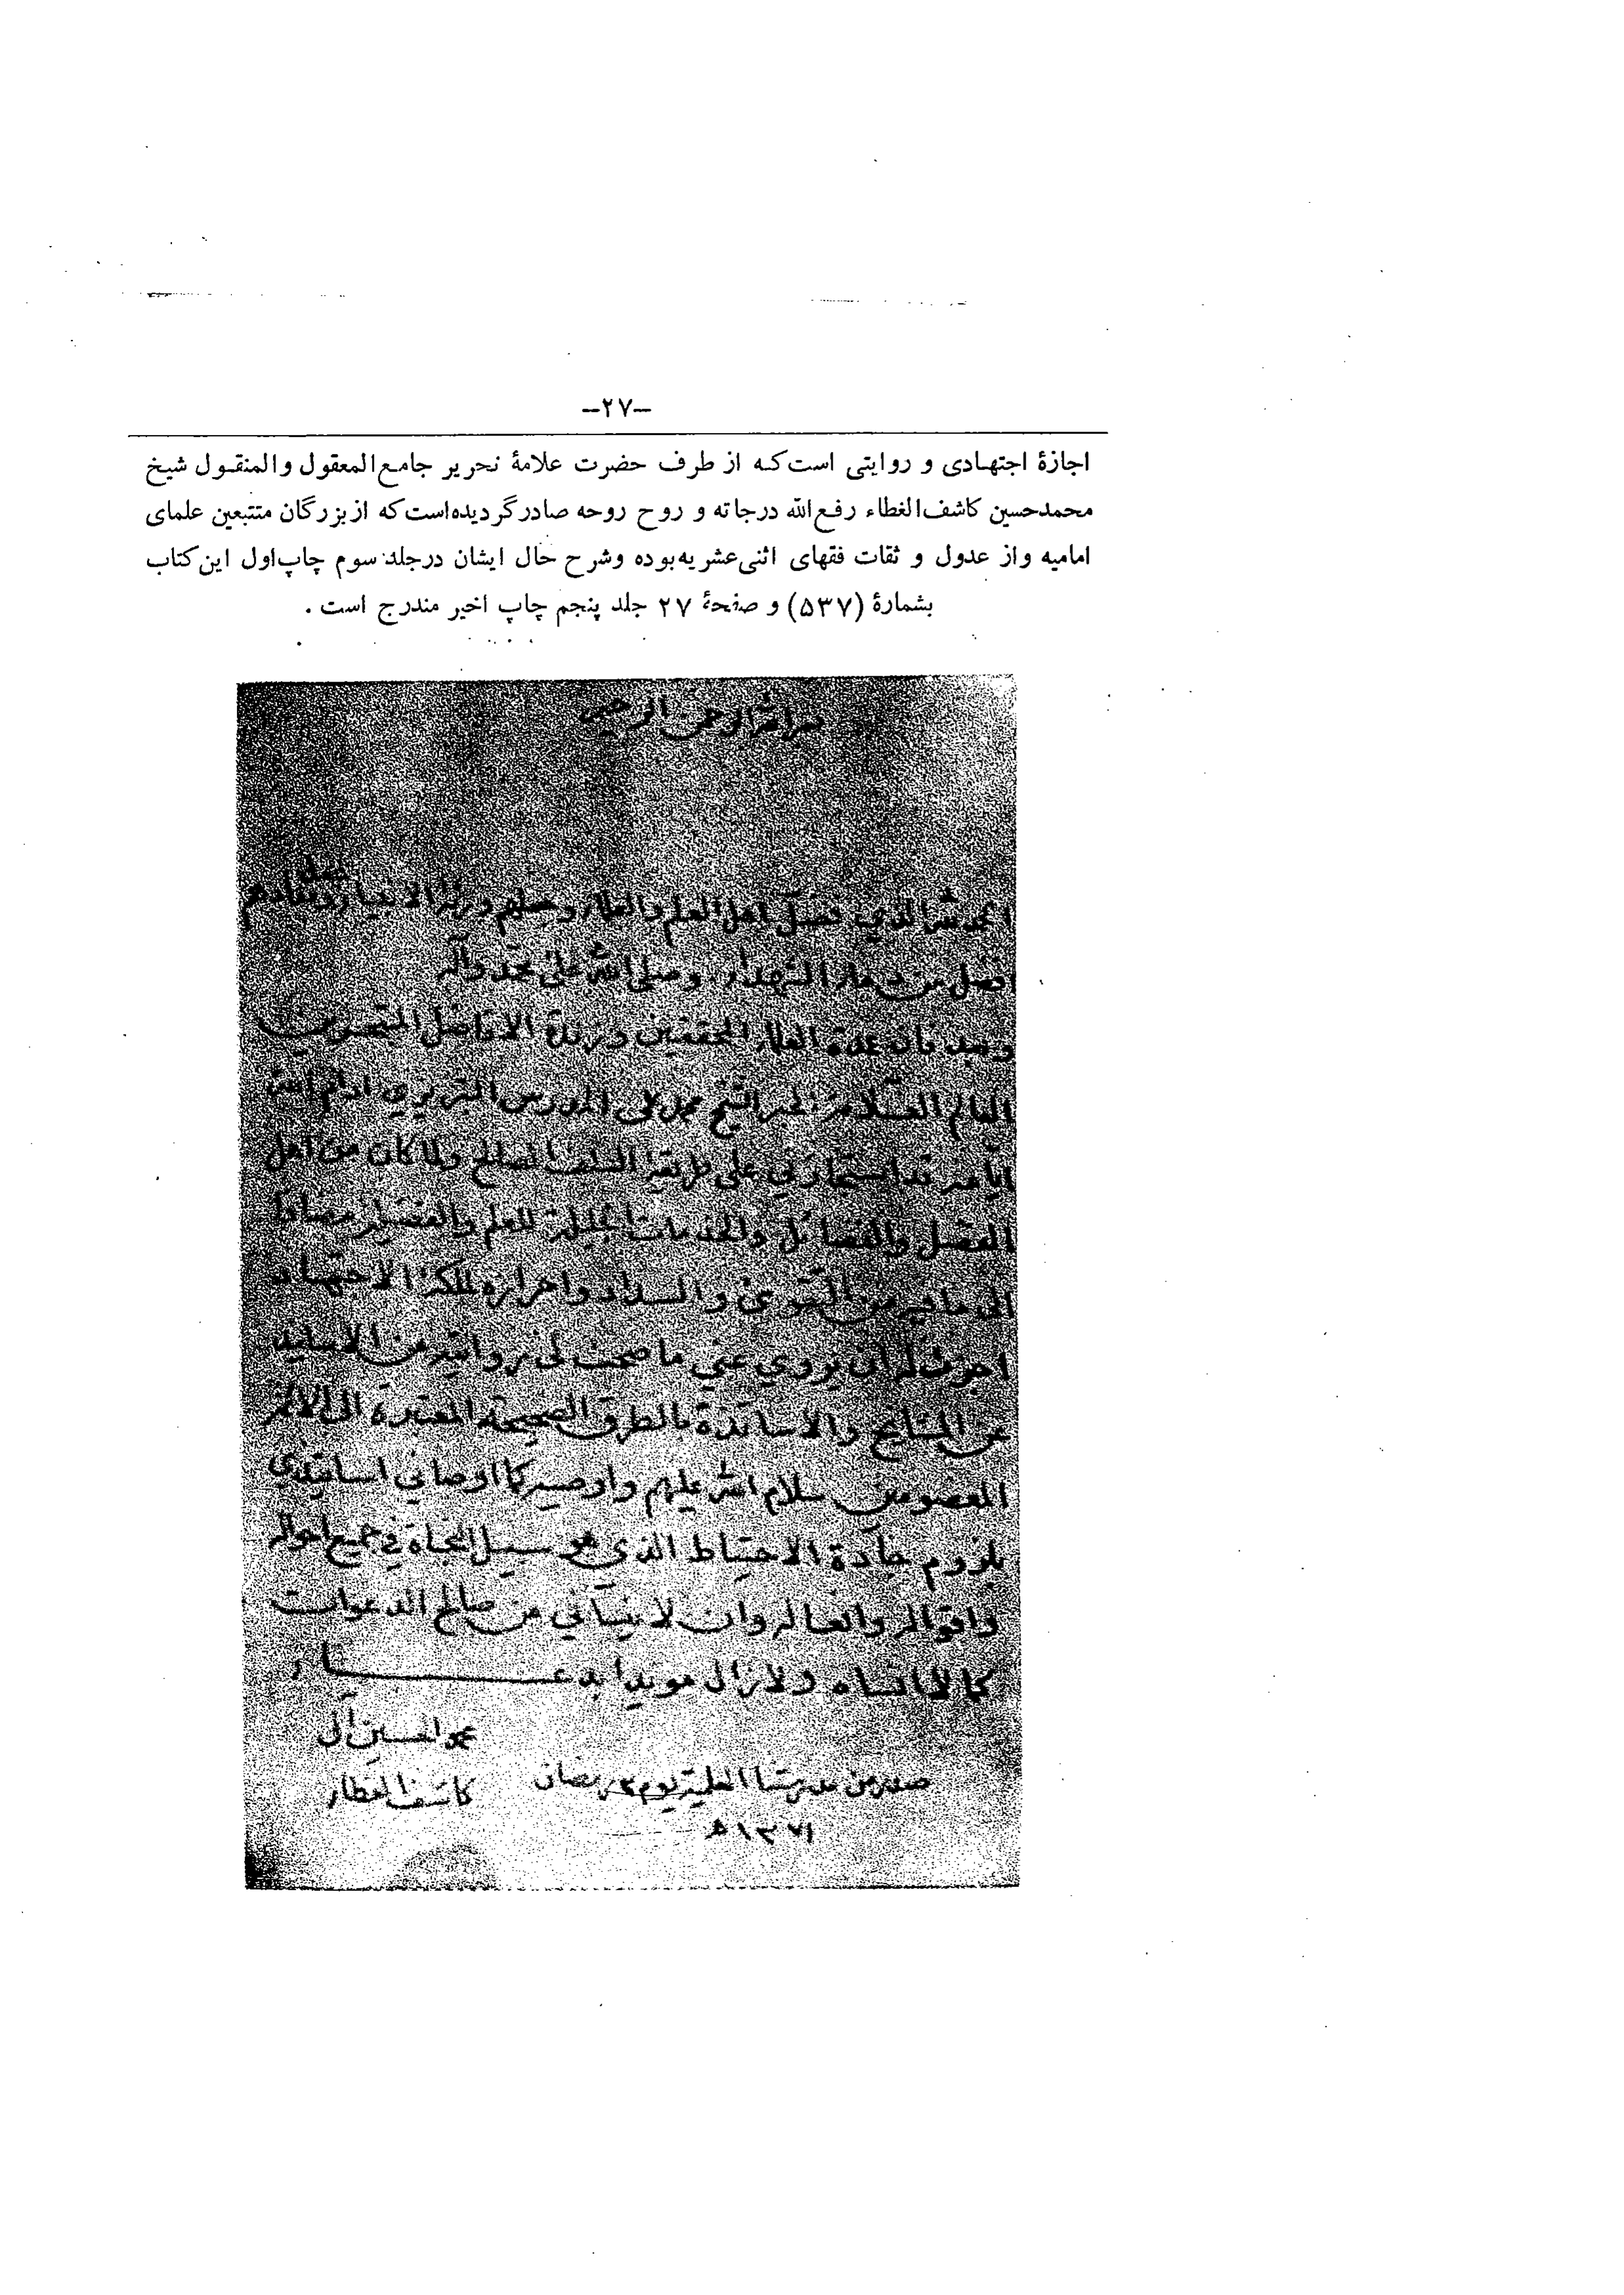 –۲۷–
اجازهٔ اجتهادی و روایتی است که از طرف حضرت علامهٔ نحریر جامع المعقول والمنقول شیخ
محمدحسین کاشف‌الغطاء رفع‌الله درجاته و روح روحه صادرگردیده‌است که از بزرگان متتبعین علمای
امامیه واز عدول و ثقات فقهای اثنی‌عشریه بوده وشرح حال ایشان درجلد سوم چاپ اول این کتاب
بشمارهٔ (۵۳۷) و صفحهٔ ۲۷ جلد پنجم چاپ اخیر مندرج است .
بسم الله الرحمن الرحیم
الحمد لله الذي فضل اهل العلم والعلماء وجعلهم ورثة الانبیاء
افضل من دماء الشهداء وصلى الله على محمد وآله
وبعد فان عمدة العلماء المحققین وزبدة الافاضل
العالم العلامة الحبر الشیخ محمد علی المدرس التبریزي ادام الله
ایامه قد استجازني على طریقة السلف الصالح ولما كان من اهل
الفضل والفضائل والخدمات الجلیلة للعلم والفضیلة مضافا
الى ما فیه من التقوى والسداد واحرازه ملكة الاجتهاد
اجزت له ان یروي عني ما صحت لي روایته من الاساتید
عن المشایخ والاساتذة بالطرق الصحیحة المعتبرة الى الائمة
المعصومین سلام الله علیهم واوصیه كما اوصاني اساتیذي
بلزوم جادة الاحتیاط الذي هو سبیل النجاة في جمیع احواله
واقواله وافعاله وان لا ینساني من صالح الدعوات
كما لا انساه ولا زال مویدا بدعاء
محمد الحسین آل
كاشف الغطاء
صدر من مدرستنا العلمیة یوم رمضان
۱۳۷۱ ه